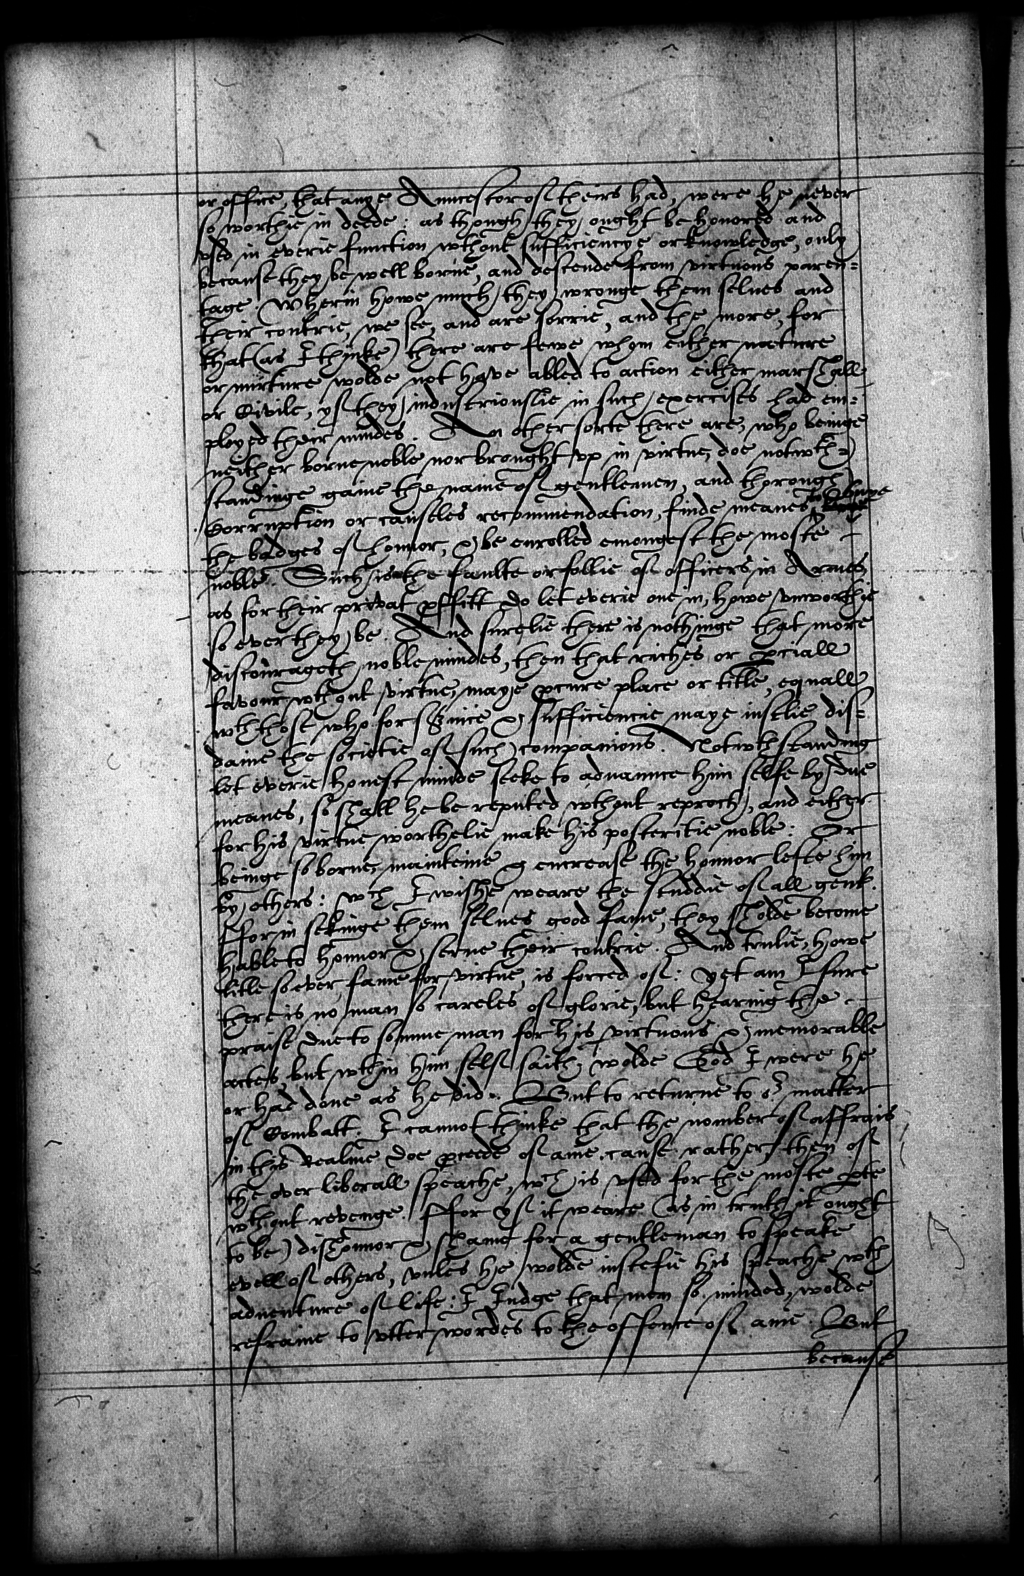 or office, that anye Auncestor of theirs had, were he never
so worthie in deede: as though they ought be honored and
vsed in everie function wthout sufficiencye or knowledge, only
because they be well borne, and descende from virtuous paren-
tage. Wherin howe much they wronge them selues and
their contrie, we see, and are sorrie, and the more, for
that (as I thinke) there are fewe whom either nature
or nurture wolde not have abled to action either marshall
or Civile, yf they industriouslie in such exercises had em-
ployed their mindes. An other sorte there are, who beinge
neither borne noble nor brought vp in virtue, doe notwth-
standinge gaine the name of gentlemen, and thorough
Corruption or causeles recommendation, finde meanes to buye
the badges of honnor, & be enrolled emongest the moste
noble. Such is the faulte or follie of officers in Armes
as for their privat pffitt do let everie one in, howe vnworthie
so ever they be. And surelie there is nothinge that more
discourageth noble mindes, then that riches or pciall
favour wthout virtue, maye pcure place or title, equall
wth those who for service & sufficiencie maye iustlie dis-
daine the societie of such companions. Notwthstanding
let everie honest minde seeke to aduannce him selfe by due
meanes, so shall he be reputed wthout reproch, and either
for his virtue worthelie make his posteritie noble: Or
beinge so borne, mainteine & encrease the honnor lefte him
by others: wch I wishe weare the studdie of all gent.
ffor in sekinge them selues good fame, they sholde become
hable to honnor & serue their contrie. And trulie, howe
litle so ever fame for virtue, is forced of: yet am I sure
there is no man so careles of glorie, but hearing the
praise due to somme man for his virtuous & memorable
actes, but wthin him self saith, wolde God I were he
or had done as he did. But to returne to ye matter
of Combatt. I cannot thinke that the nomber of affrais
in this realme doe pceede of anie cause rather then of
the over liberall speache, wch is vsed for the moste pte
wthout revenge. ffor yf it weare (as in truth it ought
to be) dishonnor & shame for a gentleman to speake
evell of others, vnles he wolde iustefie his speache wth
adventure of life: I Iudge that men so minded, wolde
refraine to vtter wordes to the offence of anie. But
because